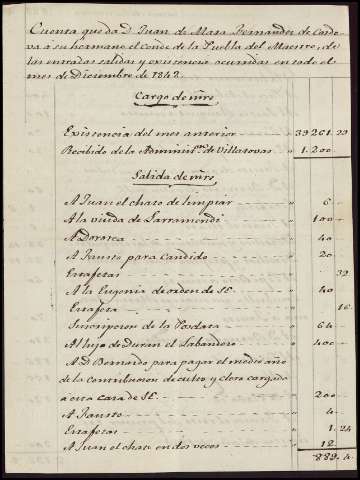 Cuenta que da D. Juan de Mata Fernandez de Cordo-
va a su hermano el conde de la Puebla del Maestre, de
las entradas salidas y existencia ocurridas en todo el
mes de Diciembre de 1842.
Cargo de mrs
Existencia del mes anterior 39261. 29
Recibido de la Administon de Villatovas 1.200
Salida de mrs
A Juan el chato de limpiar 6
A la viuda de Larramendi 100
A Dorasca 40
A Fausto para candido 20
Estafetas 32
A la Eugenia de orden de SE. 40
Estafeta 16
Suscripcion de la Posdata 64
Al hijo de Duran el Labandero 400
A D. Bernardo para pagar el medio año
de la contribucion de culto y clero cargada
a esta casa de SE. 200
A Fausto 4
Estafetas 1. 24
A Juan el chato en dos veces 12
889. 4